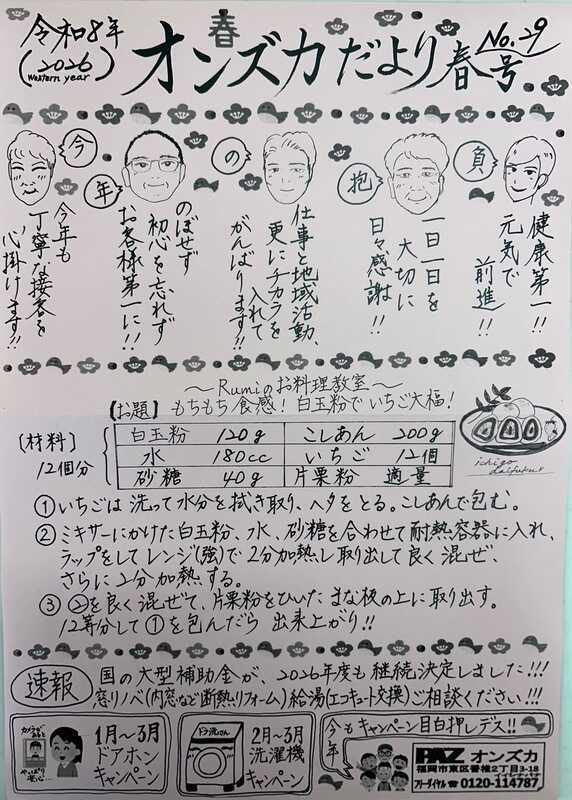 令和8年
(2026)
Western year
春
オンズカだより 春号
No.29
今年の抱負
健康第一!!
元気で
前進!!
一日一日を
大切に
日々感謝!!
仕事と地域活動、
更にチカラを
入れて
がんばります!!
のぼせず
初心を忘れず
お客様第一に!!
今年も
丁寧な接客を
心掛けます!!
〜Rumiのお料理教室〜
【お題】もちもち食感!白玉粉でいちご大福!
[材料]
12個分
白玉粉 120g こしあん 200g
水 180cc いちご 12個
砂糖 40g 片栗粉 適量
ichigo
daifuku
①いちごは洗って水分を拭き取り、ヘタをとる。こしあんで包む。
②ミキサーにかけた白玉粉、水、砂糖を合わせて耐熱容器に入れ、
ラップをしてレンジ(強)で2分加熱し取り出して良く混ぜ、
さらに2分加熱する。
③②を良く混ぜて、片栗粉をひいたまな板の上に取り出す。
12等分して①を包んだら出来上がり!!
速報
国の大型補助金が、2026年度も継続決定しました!!!
窓リノベ(内窓など断熱リフォーム)給湯(エコキュート交換)ご相談ください!!!
カメラが
あると
やっぱり
安心…
1月〜3月
ドアホン
キャンペーン
ドラム洗さん
2月〜3月
洗濯機
キャンペーン
今年もキャンペーン目白押しデス!!
PAZ オンズカ
福岡市東区香椎2丁目3-18
フリーダイヤル 0120-114787